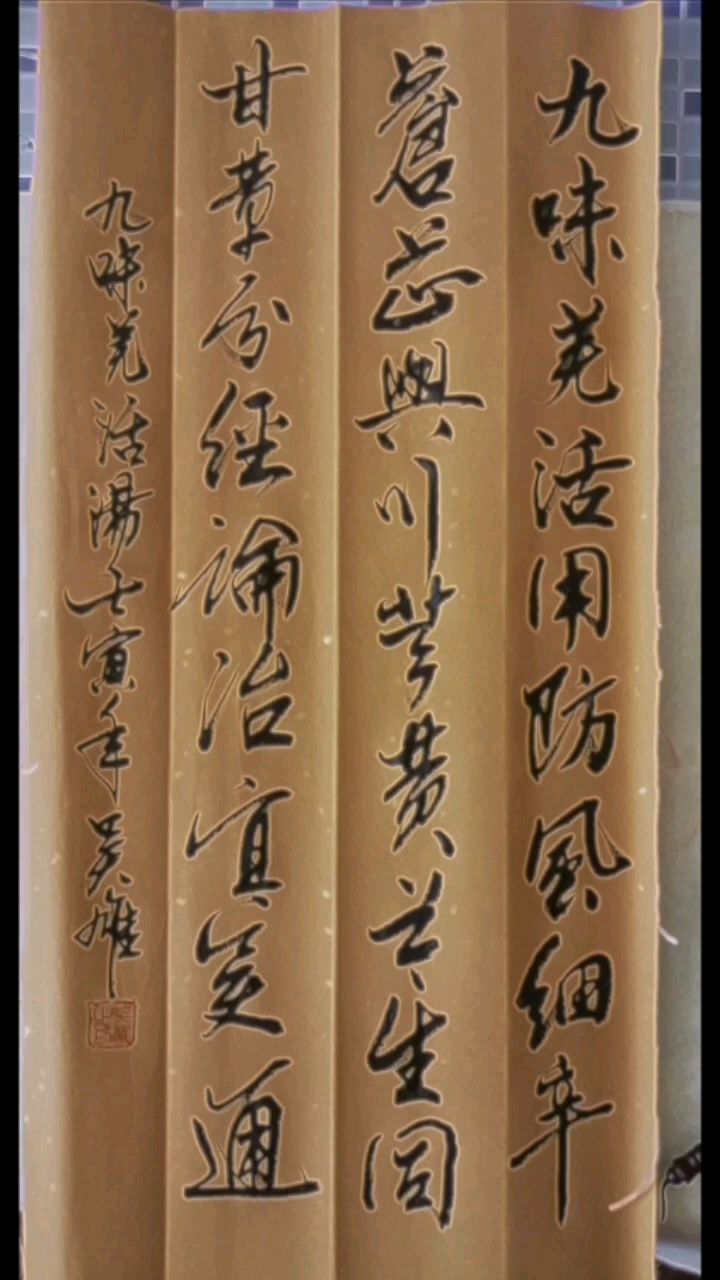 九味羌活用防風細辛
蒼芷與川芎黄芩生同
甘草分經論治宜变通
九味羌活湯壬寅年吴雄